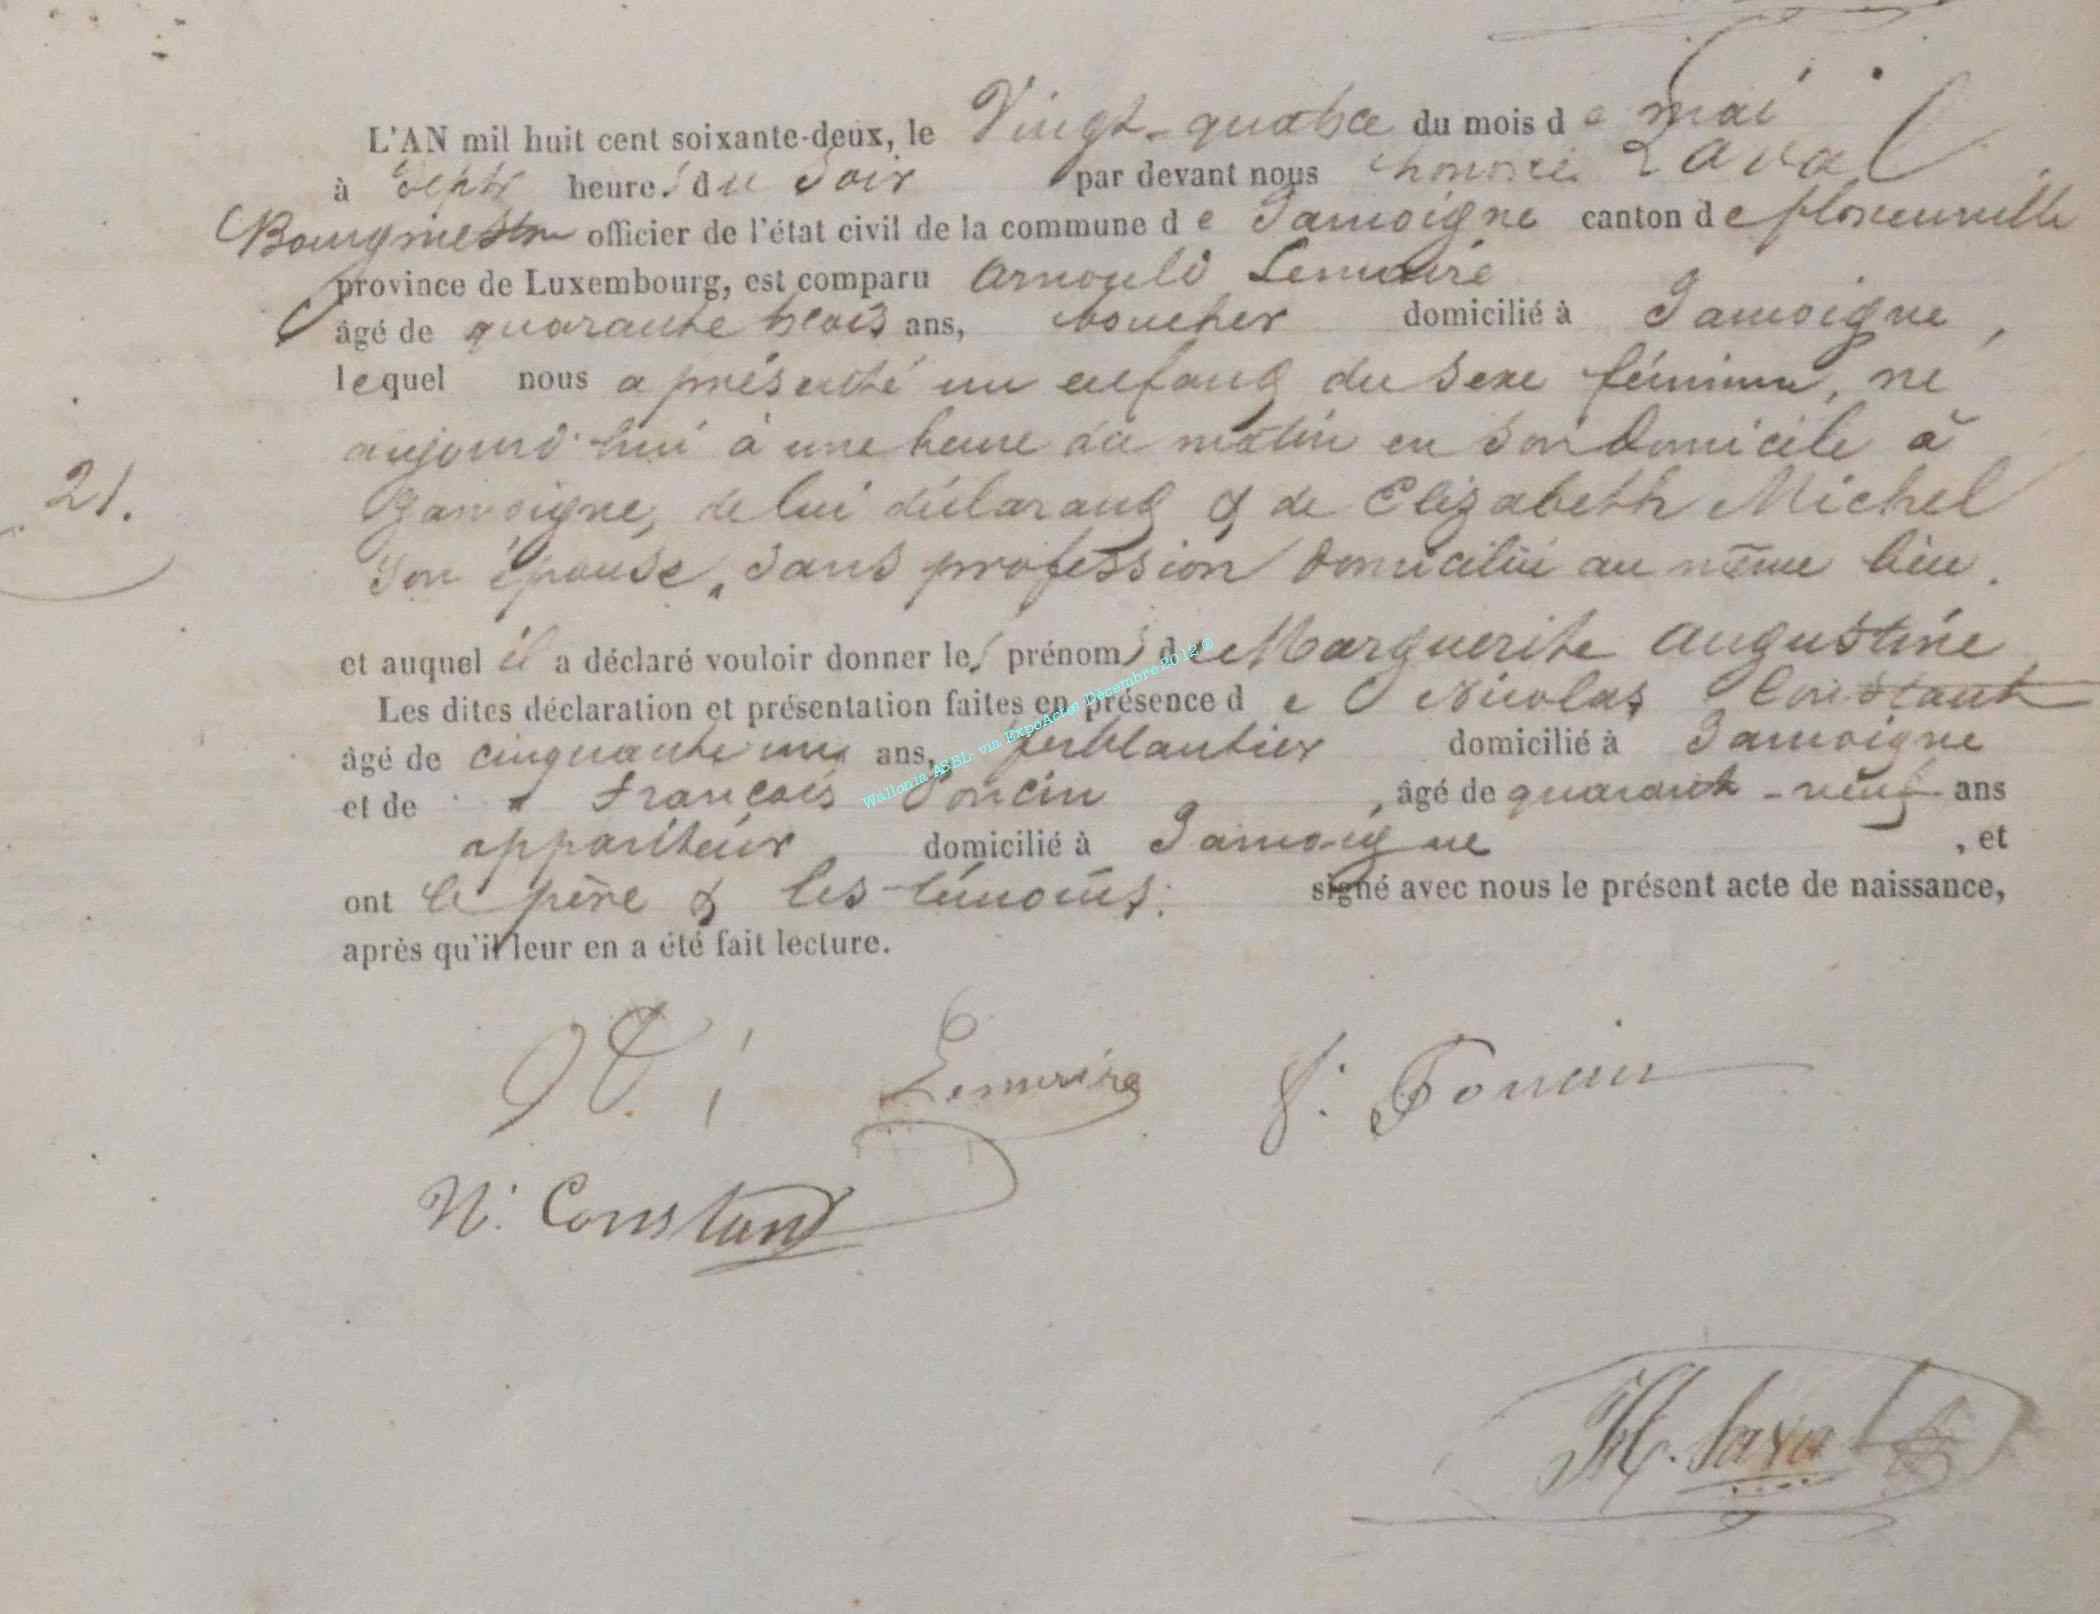 L'AN mil huit cent soixante-deux, le Vingt-quatre du mois de mai
à Sept heures du Soir par devant nous honoré Laval
Bourgmestre officier de l'état civil de la commune de Jamoigne canton de florenville
province de Luxembourg, est comparu Arnould Lemaire
âgé de quarante trois ans, boucher domicilié à Jamoigne,
lequel nous a présenté un enfant du Sexe féminin, né
aujourd'hui à une heure du matin en Son Domicile à
21. Jamoigne, de lui déclarant & de Elizabeth Michel
Son épouse, Sans profession Domicilié au même lieu.
et auquel il a déclaré vouloir donner les prénoms de Marguerite Augustine
Les dites déclaration et présentation faites en présence de Nicolas Constant
âgé de cinquante un ans, ferblantier domicilié à Jamoigne
et de François Foncin, âgé de quarante-neuf ans
appariteur domicilié à Jamoigne, et
ont le père & les témoins. signé avec nous le présent acte de naissance,
après qu'il leur en a été fait lecture.
Lemaire f. Foncin
N. Constant
H. Laval
Wallonia ASBL via ExpoActes Décembre 2012 ®